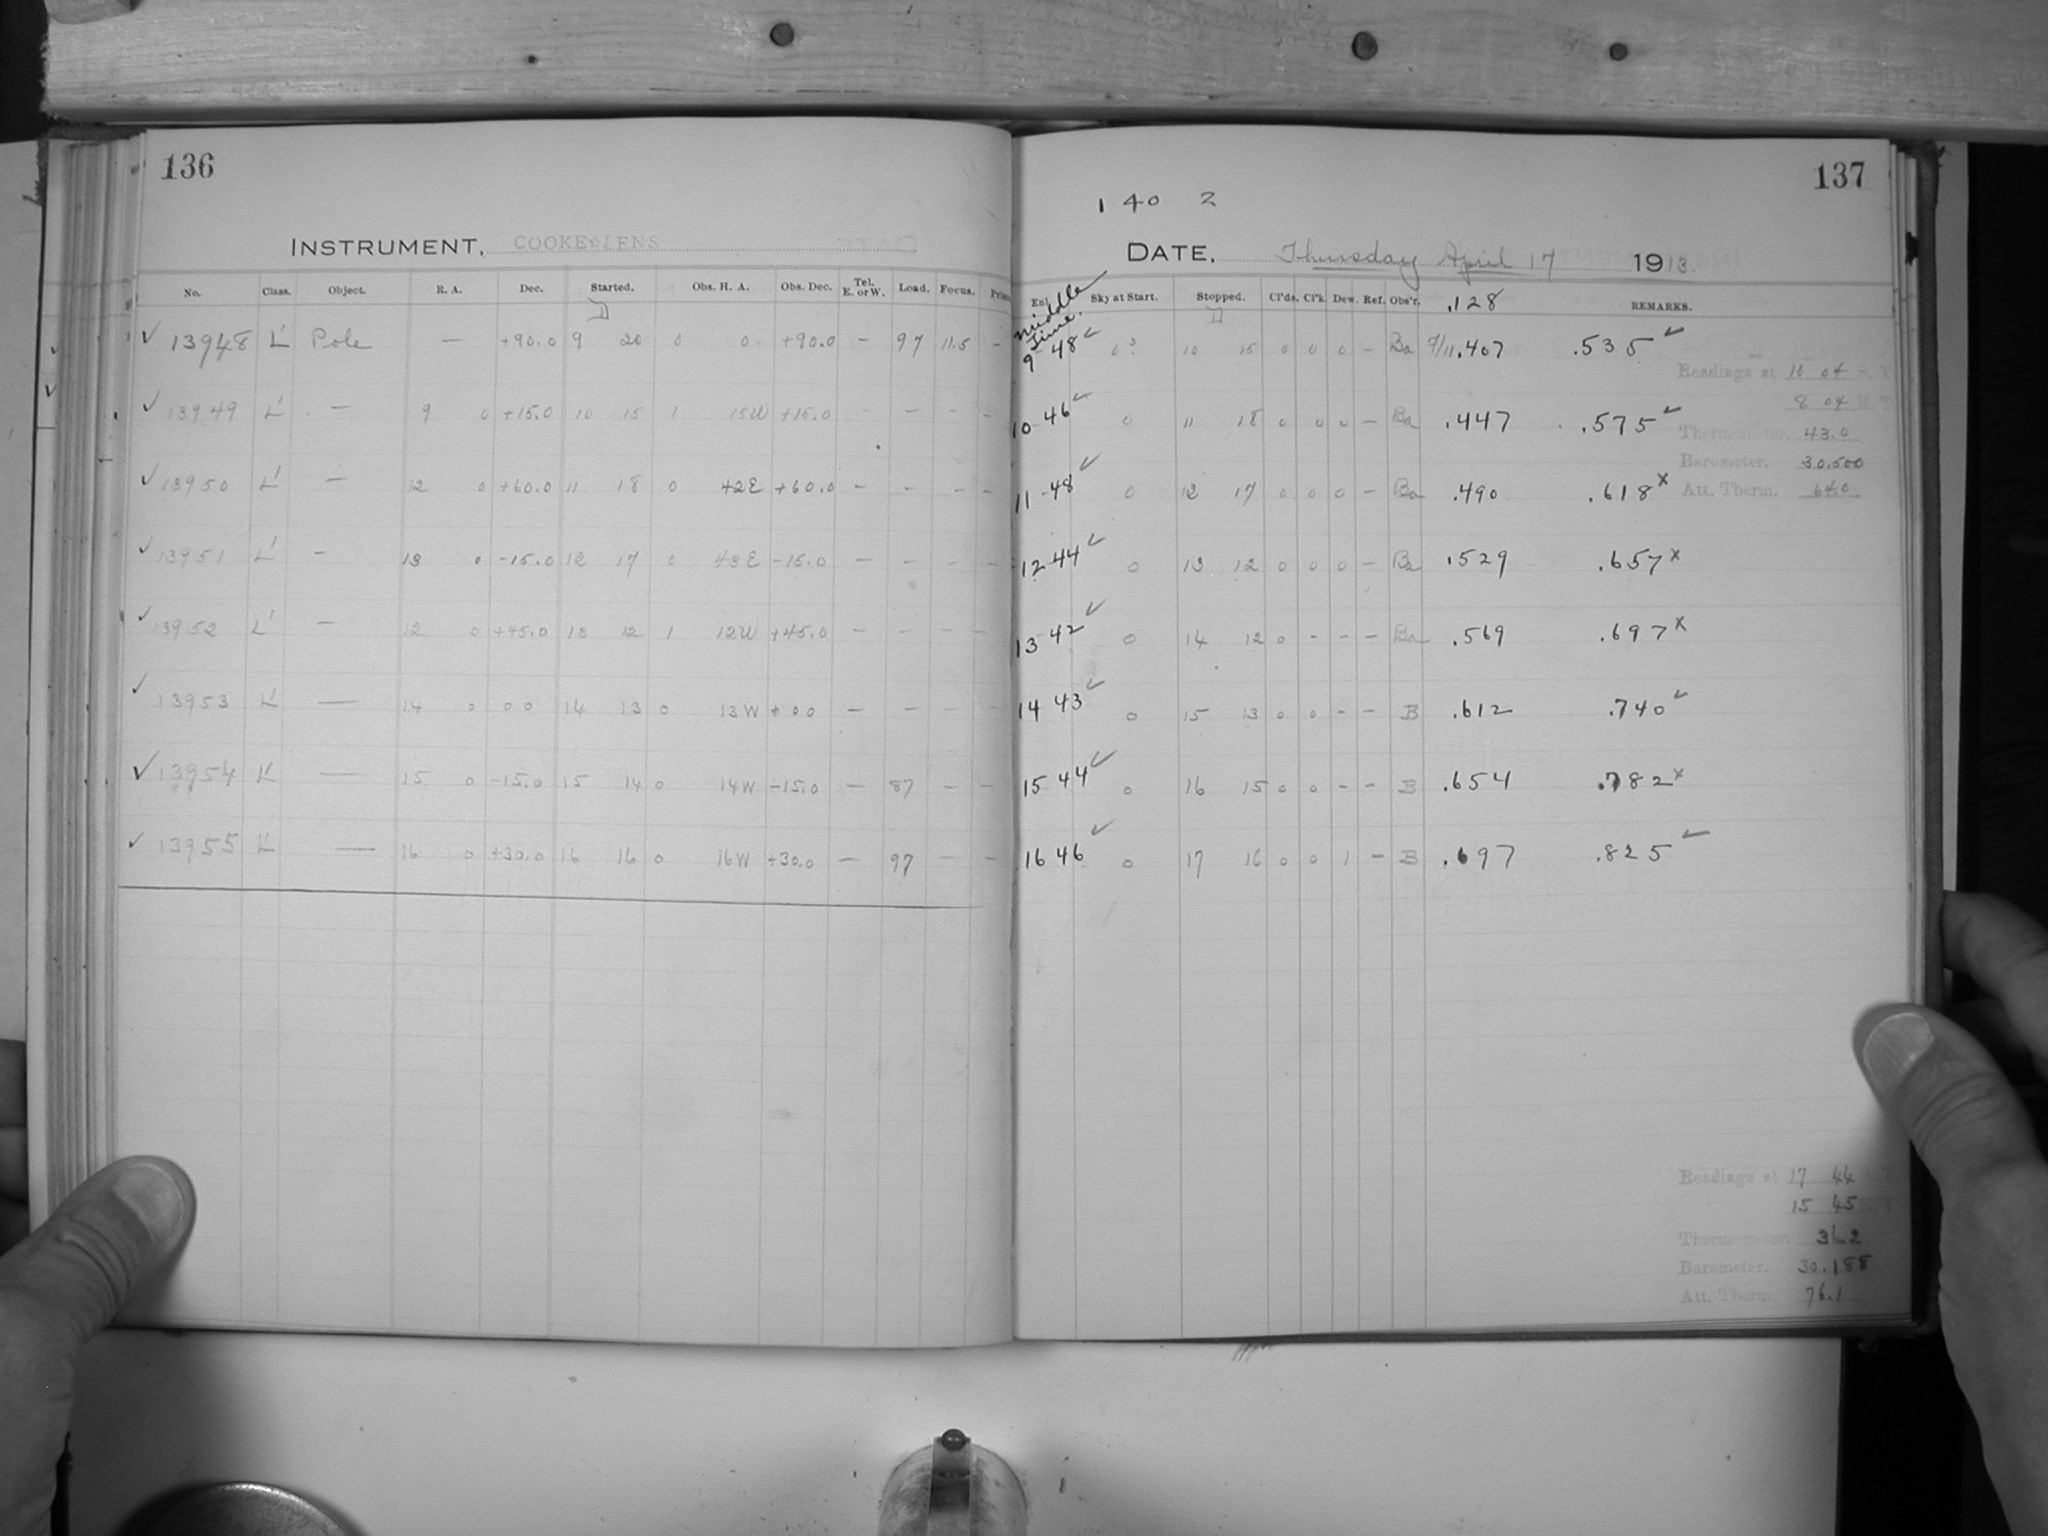 136
INSTRUMENT, COOKE LENS
No. Class. Object. R. A. Dec. Started. Obs. H. A. Obs. Dec. Tel. E. or W. Load. Focus.
✓ 13948 L' Pole — +90.0 9 20 0 0 +90.0 — 97 11.5 —
✓ 13949 L' — 9 0 +15.0 10 15 1 15W +15.0 — — — —
✓ 13950 L' — 12 0 +60.0 11 18 0 42E +60.0 — — — —
✓ 13951 L' — 13 0 -15.0 12 17 0 43E -15.0 — — — —
✓ 13952 L' — 12 0 +45.0 13 12 1 12W +45.0 — — — —
✓ 13953 L' — 14 0 0 0 14 13 0 13W +0 0 — — — —
✓ 13954 L' — 15 0 -15.0 15 14 0 14W -15.0 — 87 — —
✓ 13955 L' — 16 0 +30.0 16 16 0 16W +30.0 — 97 — —
137
1 40 2
DATE, Thursday April 17 1913.
Enl. Sky at Start. Stopped. Cl'ds. Cl'k. Dew. Ref. Obs'r. .128 REMARKS.
middle
time.
9-48 ✓ 10 15 0 0 0 — Ba .407 .535 ✓
Readings at 10 04 S. T.
8 04 E. T.
10-46 ✓ 0 11 18 0 0 0 — Ba .447 .575 ✓
Thermometer. 43.0
Barometer. 30.500
11-48 ✓ 0 12 17 0 0 0 — Ba .490 .618 x
Att. Therm. 64.0
12-44 ✓ 0 13 12 0 0 0 — Ba .529 .657 x
13-42 ✓ 0 14 12 0 - - — Ba .569 .697 x
14 43 ✓ 0 15 13 0 0 - - B .612 .740 ✓
15-44 ✓ 0 16 15 0 0 - - B .654 .782 x
16 46 ✓ 0 17 16 0 0 1 — B .697 .825 ✓
Readings at 17 44 S. T.
15 45
Thermometer.
Barometer. 30.188
Att. Therm. 76.1